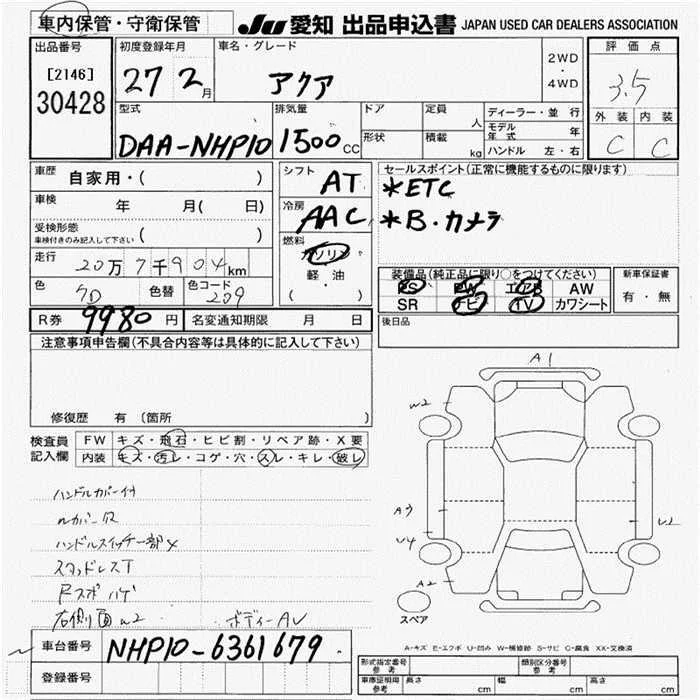 車内保管・守衛保管
JU 愛知 出品申込書 JAPAN USED CAR DEALERS ASSOCIATION
出品番号
[2146]
30428
初度登録年月
27 2月
車名・グレード
アクア
2WD
・
4WD
評価点
3.5
外装 内装
C C
型式
DAA-NHP10
排気量
1500cc
ドア
形状
定員
人
積載
kg
ディーラー・並行
モデル年式 年
ハンドル 左・右
車歴
自家用・( )
車検
年 月( 日)
受検形態
車検付きのみ記入して下さい ( )
走行
20万7千904km
色
色替
色コード
209
シフト
AT
冷房
AAC
燃料
ガソリン
軽・油
( ・ )
セールスポイント(正常に機能するものに限ります)
*ETC
*B・カメラ
装備品(純正品に限り○をつけてください)
PS PW エアB AW
SR ナビ TV カワシート
新車保証書
有・無
後日品
R券 9980円
名変通知期限 月 日
注意事項申告欄(不具合内容等は具体的に記入して下さい)
修復歴 有 (箇所 )
検査員記入欄
FW キズ・飛石・ヒビ割・リペア跡・X要
内装 キズ・汚レ・コゲ・穴・スレ・キレ・破レ
ハンドルカバー付
ハンドルスイッチ一部
スタッドレスT
右側面 W2
A1
W2
A3
U4
U2
A2
スペア
A-キズ E-エクボ U-凹み W-補修跡 S-サビ C-腐食 XX-交換済
車台番号
NHP10-6361679
登録番号
形式指定番号
参考
類別区分番号
参考
車庫証明用
参考
長さ cm 幅 cm 高さ cm